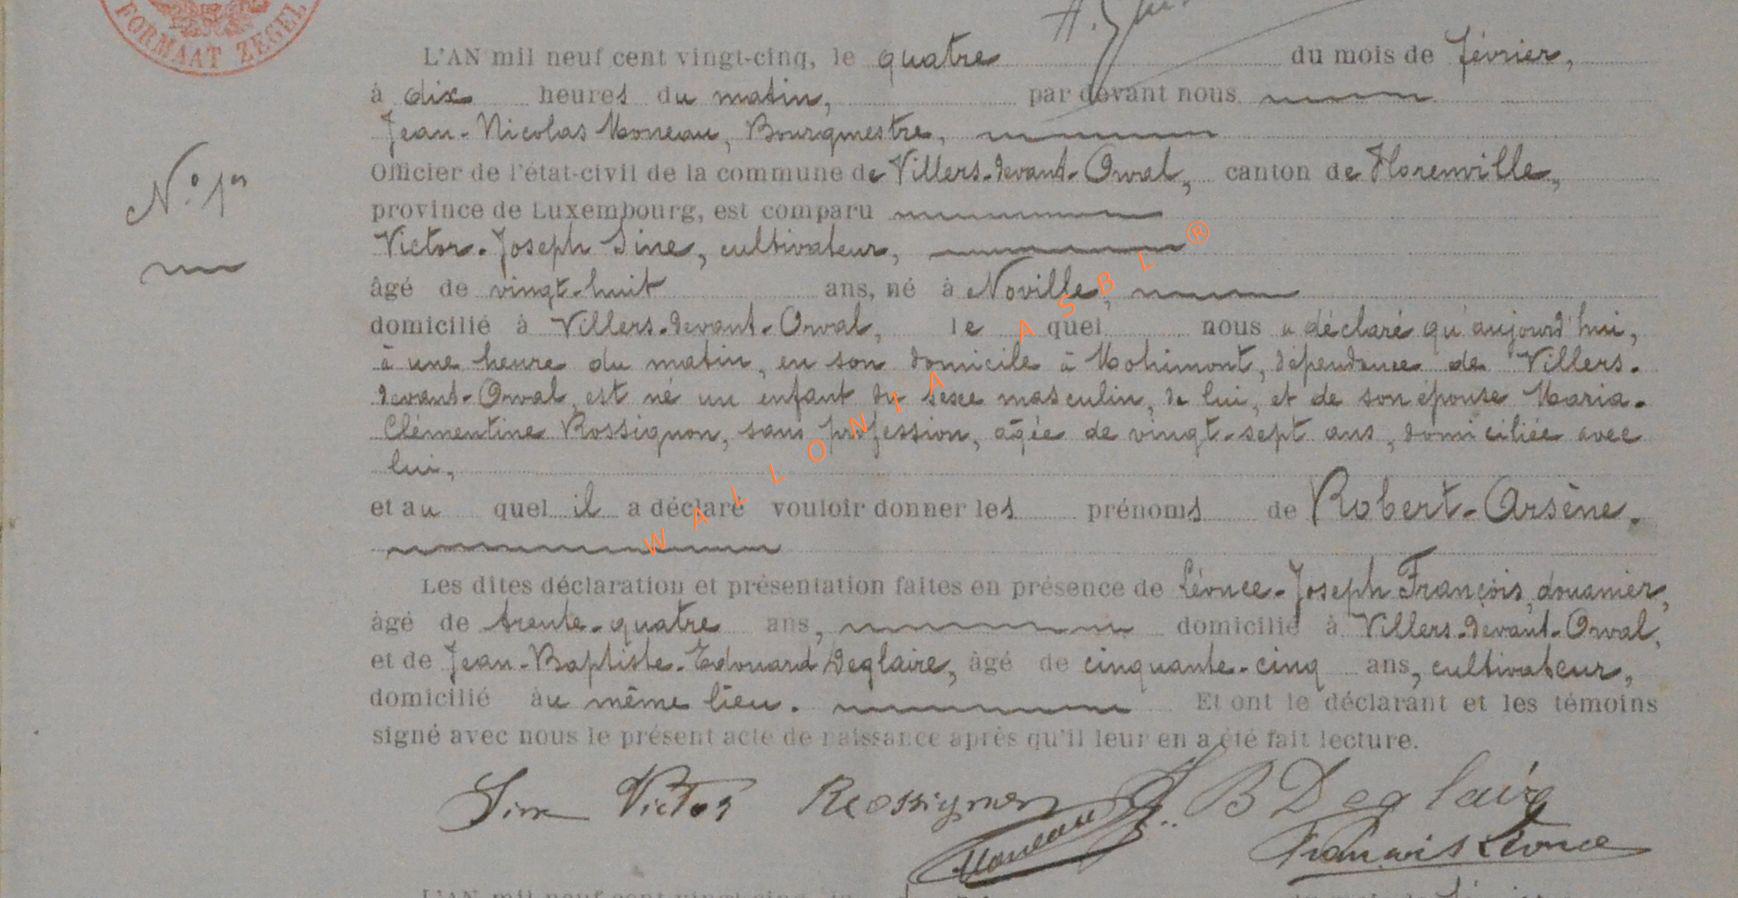 FORMAAT ZEGEL
L'AN mil neuf cent vingt-cinq, le quatre du mois de février,
à dix heures du matin, par devant nous
Jean-Nicolas Moneau, Bourgmestre,
Officier de l'état-civil de la commune de Villers-devant-Orval, canton de Florenville,
N° 1er
province de Luxembourg, est comparu
Victor-Joseph Sine, cultivateur,
âgé de vingt-huit ans, né à Noville,
domicilié à Villers-devant-Orval, le quel nous a déclaré qu'aujourd'hui,
à une heure du matin, en son domicile à Mohimont, dépendance de Villers-
devant-Orval, est né un enfant du sexe masculin, de lui, et de son épouse Maria-
Clémentine Rossignon, sans profession, âgée de vingt-sept ans, domiciliée avec
lui,
et au quel il a déclaré vouloir donner les prénoms de Robert-Arsène.
WALLONIA ASBL ®
Les dites déclaration et présentation faites en présence de Léonce-Joseph François, douanier,
âgé de trente-quatre ans, domicilié à Villers-devant-Orval,
et de Jean-Baptiste-Edouard Deglaire, âgé de cinquante-cinq ans, cultivateur,
domicilié au même lieu. Et ont le déclarant et les témoins
signé avec nous le présent acte de naissance après qu'il leur en a été fait lecture.
Sine Victor Rossignon J. B Deglaire
Moneau François Léonce
L'AN mil neuf cent vingt-cinq, le